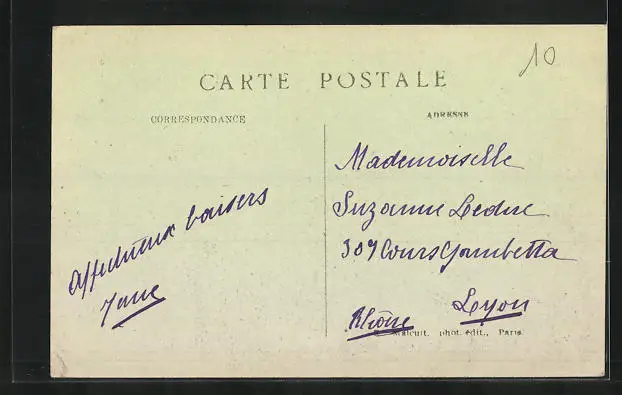 10
CARTE POSTALE
CORRESPONDANCE
ADRESSE
Affectueux baisers
Jane
Mademoiselle
Suzanne Leduc
307 Cours Gambetta
Lyon
Rhône
phot. édit., Paris